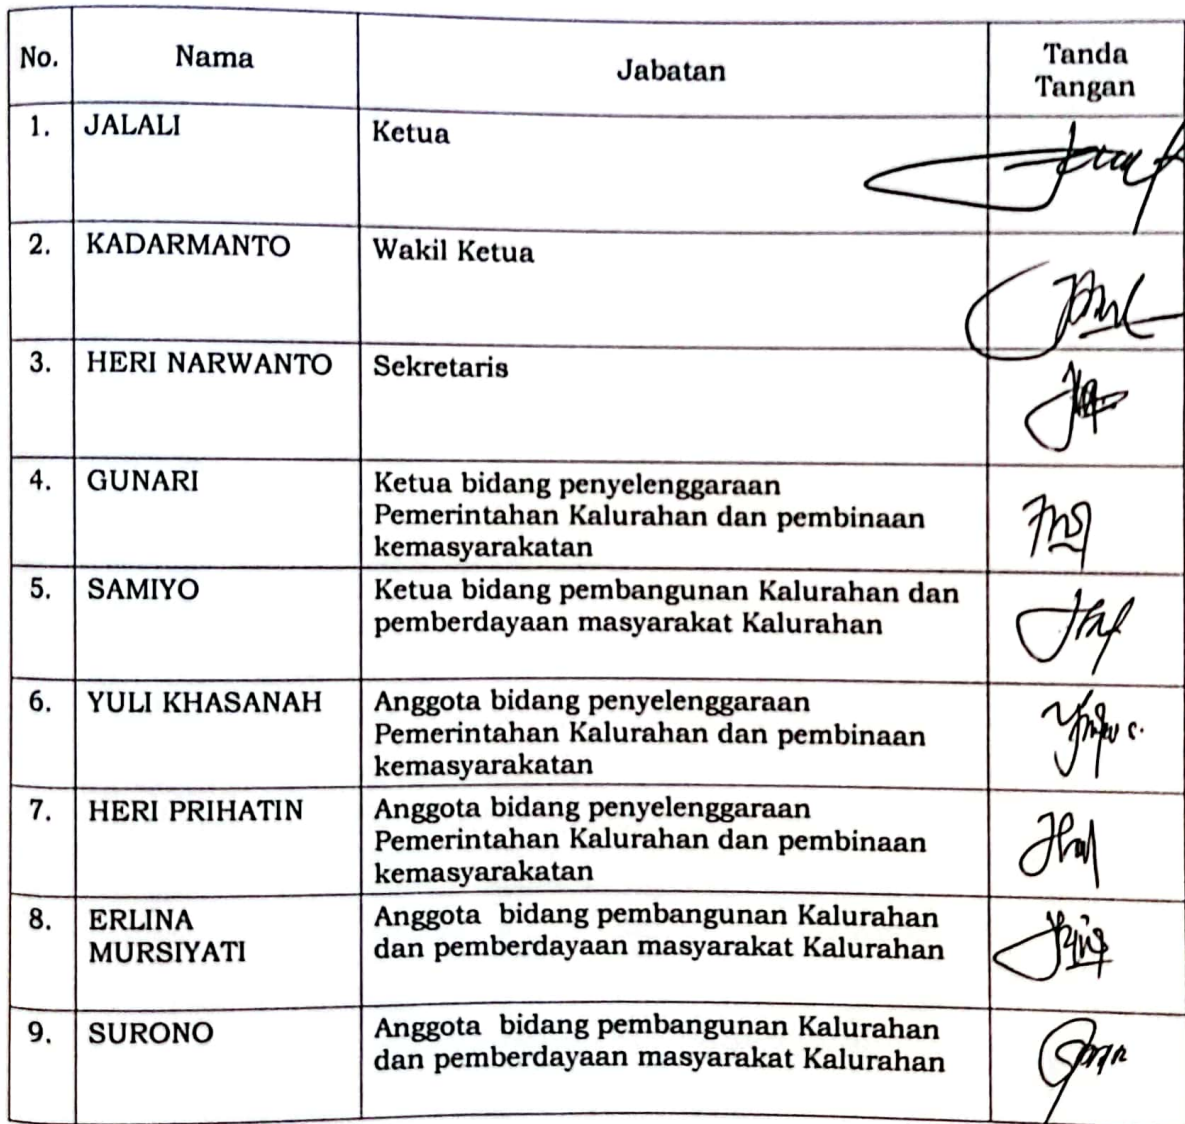 No. Nama Jabatan Tanda Tangan
1. JALALI Ketua
2. KADARMANTO Wakil Ketua
3. HERI NARWANTO Sekretaris
4. GUNARI Ketua bidang penyelenggaraan
Pemerintahan Kalurahan dan pembinaan
kemasyarakatan
5. SAMIYO Ketua bidang pembangunan Kalurahan dan
pemberdayaan masyarakat Kalurahan
6. YULI KHASANAH Anggota bidang penyelenggaraan
Pemerintahan Kalurahan dan pembinaan
kemasyarakatan
7. HERI PRIHATIN Anggota bidang penyelenggaraan
Pemerintahan Kalurahan dan pembinaan
kemasyarakatan
8. ERLINA MURSIYATI Anggota bidang pembangunan Kalurahan
dan pemberdayaan masyarakat Kalurahan
9. SURONO Anggota bidang pembangunan Kalurahan
dan pemberdayaan masyarakat Kalurahan